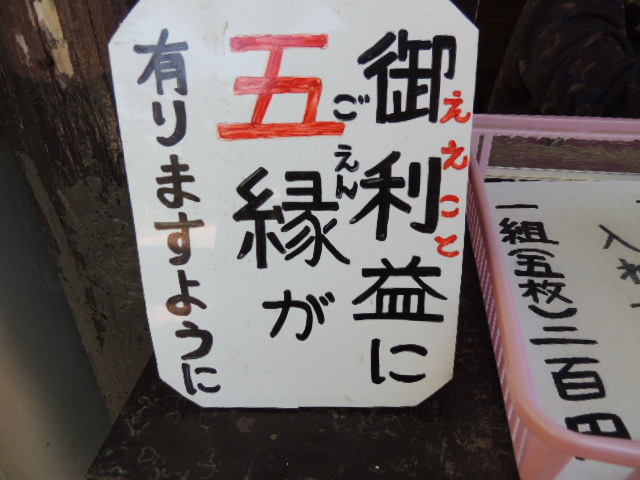 御利益に
ええこと
五縁が
ごえん
有りますように
入れ
一組(五枚)二百円